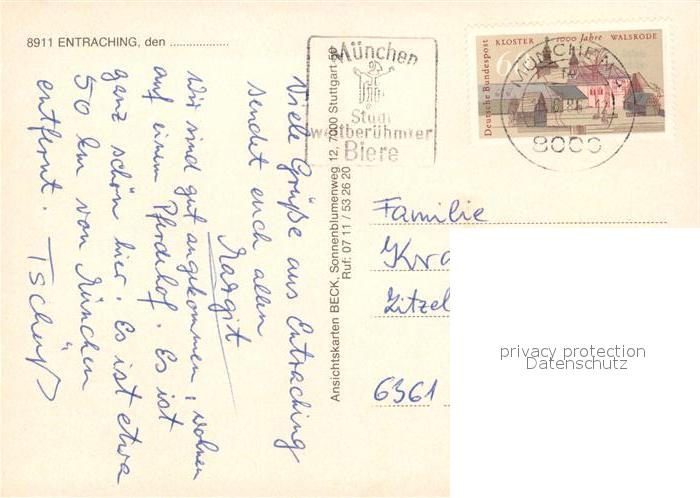 8911 ENTRACHING, den ..................
Viele Grüße aus Entraching
sendet euch allen
Margit
Wir sind gut angekommen, wohnen
auf einem Pferdehof. Es ist
ganz schön hier. Es ist etwa
50 km von München
entfernt. Tschüß
Ansichtskarten BECK, Sonnenblumenweg 12, 7000 Stuttgart 50
Ruf: 07 11 / 53 26 20
München
Stadt
weltberühmter
Biere
Deutsche Bundespost
KLOSTER 1000 Jahre WALSRODE
60
MÜNCHEN
8000
Familie
Kra
Zitzel
6361
privacy protection
Datenschutz